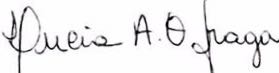 Lucia A. O. Fraga